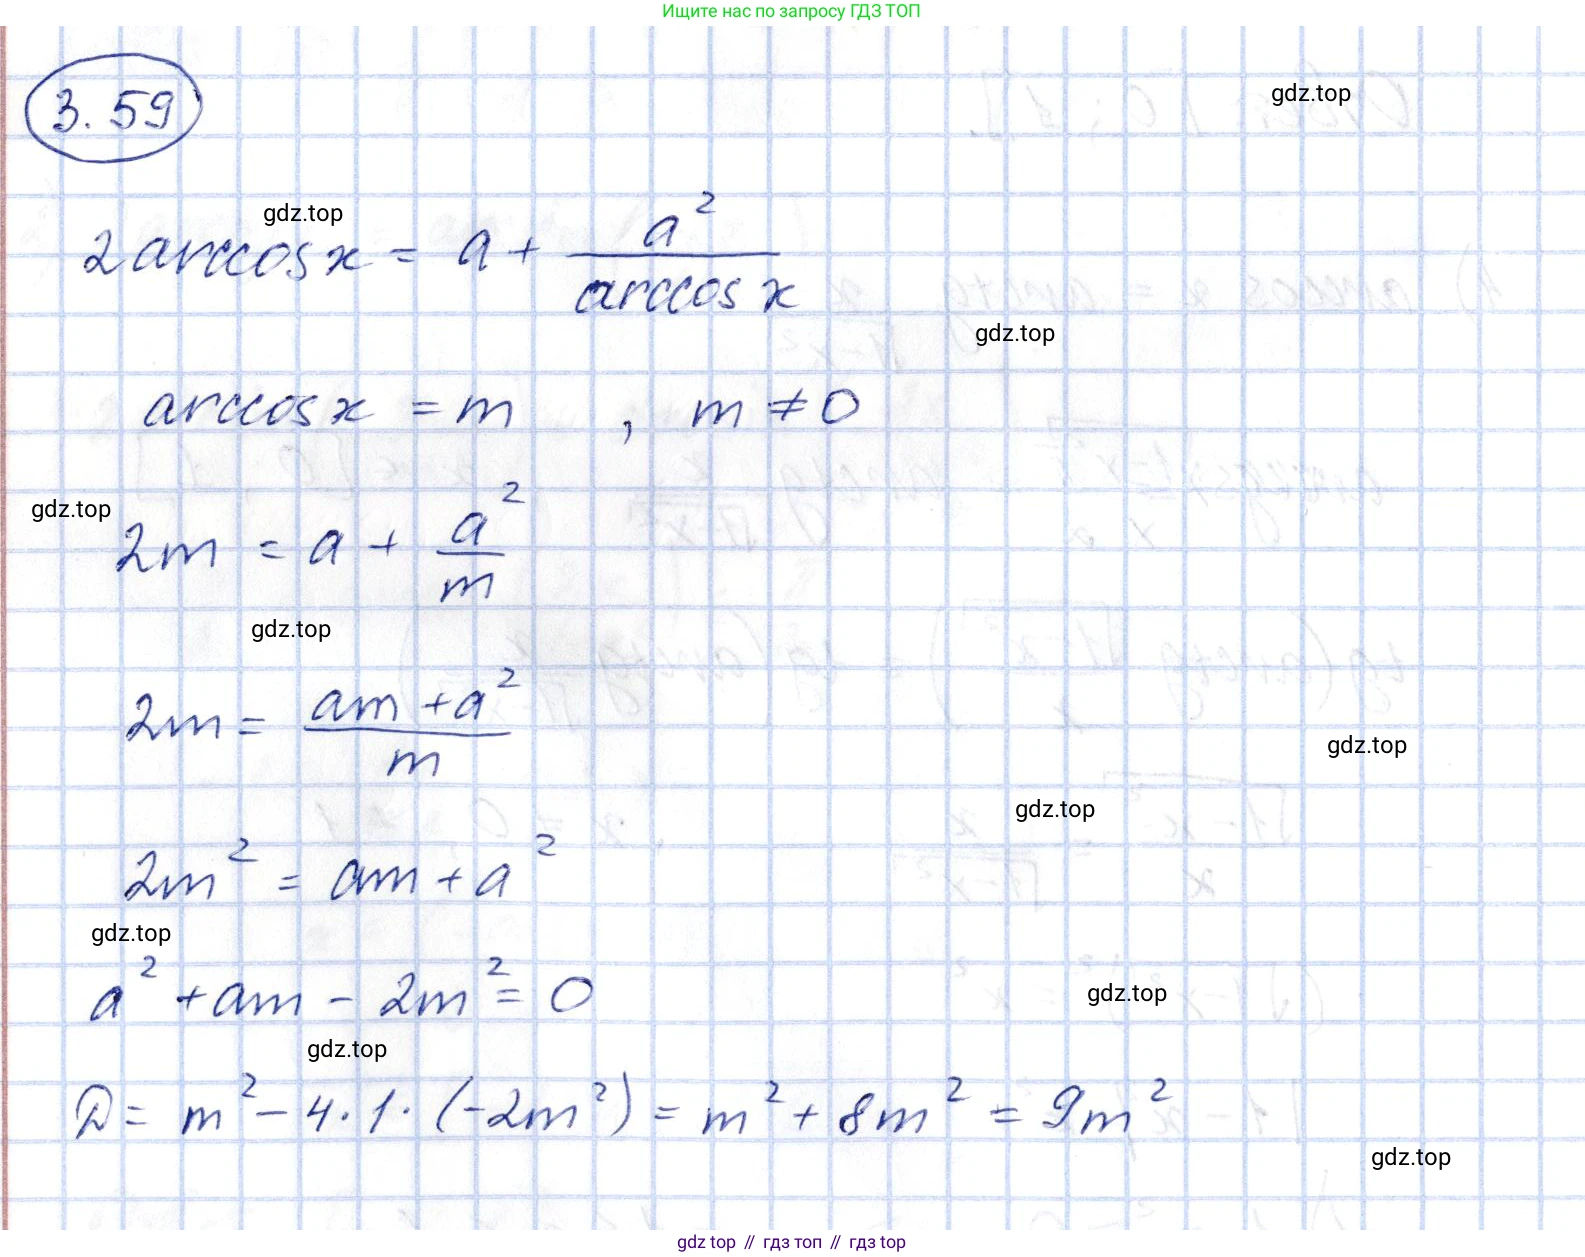 Ищите нас по запросу ГДЗ ТОП
3.59
gdz.top
gdz.top
2 arccos x = a + a² / arccos x
gdz.top
arccos x = m , m ≠ 0
gdz.top
2m = a + a² / m
gdz.top
2m = am + a² / m
gdz.top
gdz.top
2m² = am + a²
gdz.top
a² + am - 2m² = 0
gdz.top
gdz.top
D = m² - 4 · 1 · (-2m²) = m² + 8m² = 9m²
gdz.top
gdz top // гдз топ // gdz top